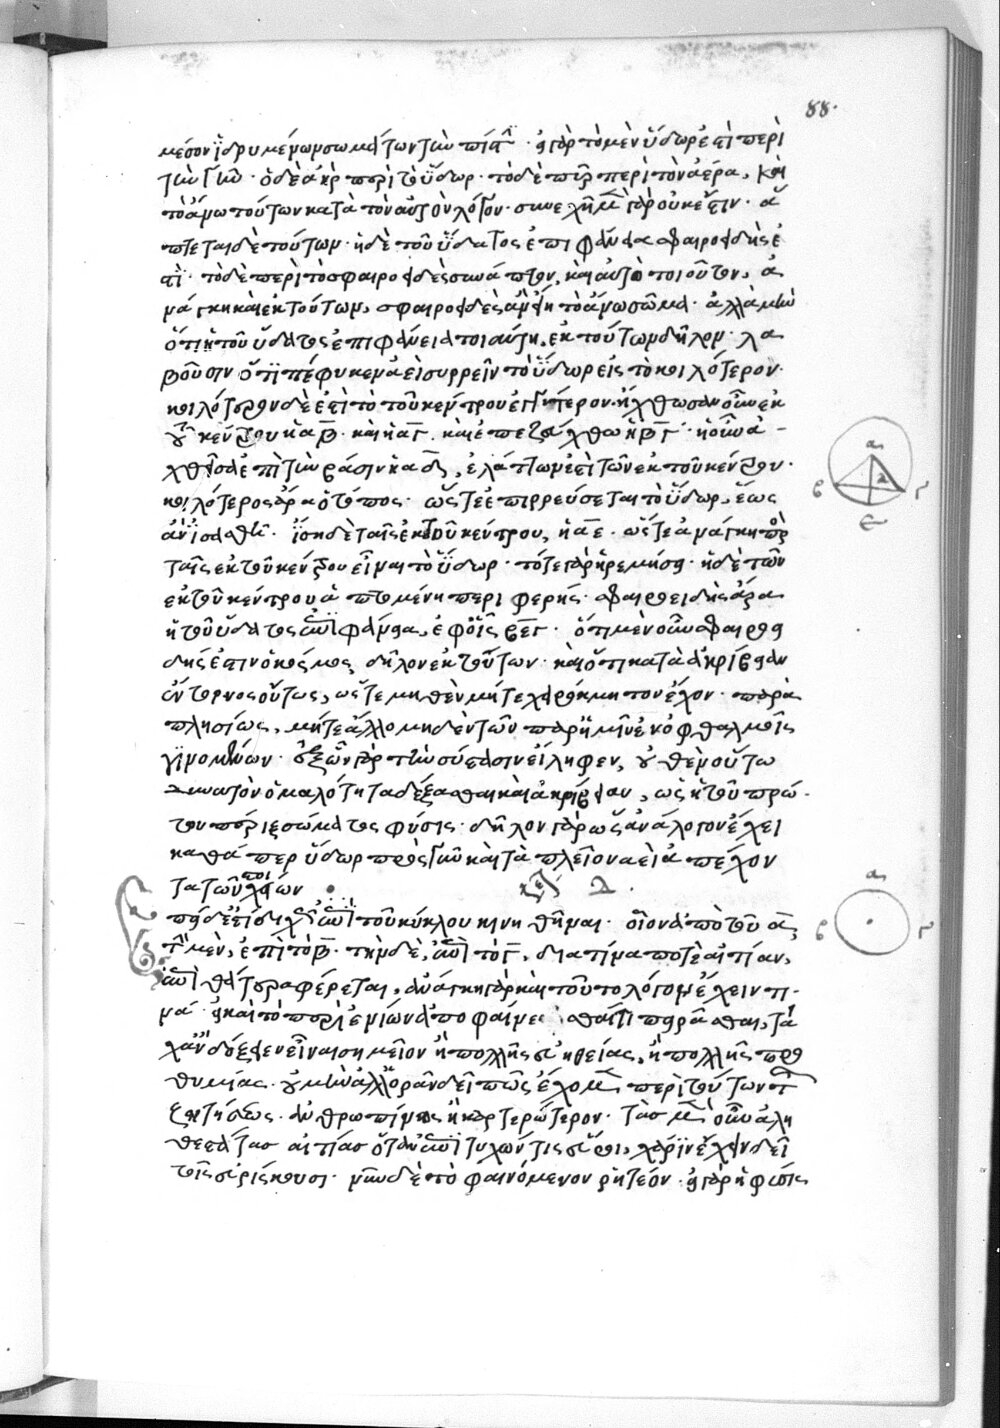 88.
μέσον ἱδρυμένων σωμάτων τὴν πίστιν · εἰ γὰρ τὸ μὲν ὕδωρ ἐστὶ περὶ
τὴν γῆν · ὁ δὲ ἀὴρ περὶ τὸ ὕδωρ · τὸ δὲ πῦρ περὶ τὸν ἀέρα, καὶ
τὸ ἄνω τούτων κατὰ τὸν αὐτὸν λόγον · συνεχῆ μὲν γὰρ οὐκ ἔστιν · ἅ
πτεται δὲ τούτων · ἡ δὲ τοῦ ὕδατος ἐπιφάνεια σφαιροειδής ἐ
στὶ · τὸ δὲ περὶ τὸ σφαιροειδὲς συνάπτον, καὶ αὐτὸ τοιοῦτον, ἀ
νάγκη καὶ ἐκ τούτων, σφαιροειδὲς ἂν εἴη τὸ ἄνω σῶμα · ἀλλὰ μὴν
ὅτι ἡ τοῦ ὕδατος ἐπιφάνεια τοιαύτη, ἐκ τούτων δῆλον · λα
βοῦσιν ὅτι πέφυκεν ἀεὶ συρρεῖν τὸ ὕδωρ εἰς τὸ κοιλότερον ·
κοιλότερον δὲ ἐστὶ τὸ τοῦ κέντρου ἐγγύτερον · ἤχθωσαν οὖν ἐκ
τοῦ κέντρου ἡ αβ · καὶ ἡ αγ · καὶ ἐπεζεύχθω ἡ βγ · ἡ οὖν ἀ -
χθεῖσα ἐπὶ τὴν βάσιν ἡ αδ, ἐλάττων ἐστὶ τῶν ἐκ τοῦ κέντρου ·
κοιλότερος ἄρα ὁ τόπος · ὥστε ἐπιρρεύσεται τὸ ὕδωρ, ἕως
ἂν ἰσασθῇ · ἴση δὲ ταῖς ἐκ τοῦ κέντρου, ἡ αε · ὥστε ἀνάγκη πρὸς
ταῖς ἐκ τοῦ κέντρου εἶναι τὸ ὕδωρ · τότε γὰρ ἠρεμήσει · ἡ δὲ τῶν
ἐκ τοῦ κέντρου ἁπτομένη περιφερής · σφαιροειδὴς ἄρα
ἡ τοῦ ὕδατος ἐπιφάνεια, ἐφ' οἷς βεγ · ὅτι μὲν οὖν σφαιροει
δής ἐστιν ὁ κόσμος, δῆλον ἐκ τούτων · καὶ ὅτι κατὰ ἀκρίβειαν
ἔντορνος οὕτως, ὥστε μηθὲν μήτε χειρόκμητον ἔχον · παρα
πλησίως, μήτε ἄλλο μηδὲν τῶν παρ' ἡμῖν ἐν ὀφθαλμοῖς
γινομένων · ἐξ ὧν γὰρ τὴν σύστασιν εἴληφεν, οὐθὲν οὕτω
δυνατὸν ὁμαλότητα δέξασθαι καὶ ἀκρίβειαν, ὡς ἡ τοῦ πρώ -
του πέριξ σώματος φύσις · δῆλον γὰρ ὡς ἀνάλογον ἔχει
καθάπερ ὕδωρ πρὸς γῆν καὶ τὰ πλεῖον ἀεὶ ἀπέχοντα
τῶν συστοίχων
Ἐπεὶ δέ ἐστι διχῶς ἐπὶ τοῦ κύκλου κινηθῆναι · οἷον ἀπὸ τοῦ α,
τὴν μὲν, ἐπὶ τὸ β · τὴν δὲ, ἐπὶ τὸ γ, διὰ τίνα ποτὲ αἰτίαν,
ἐπὶ θάτερα φέρεται, ἀνάγκη γὰρ καὶ τοῦτο λόγον ἔχειν τι -
νά · εἰ καὶ τὸ περὶ ἐνίων ἀποφαίνεσθαί τι πειρᾶσθαι, τά
χ' ἂν δόξειεν εἶναι σημεῖον ἢ πολλῆς εὐηθείας, ἢ πολλῆς προ
θυμίας · οὐ μὴν ἀλλ' ὁρᾶν δεῖ πῶς ἔχομεν περὶ τούτων τῆς
ζητήσεως · ἀνθρωπίνως ἢ καρτερώτερον · τὰς μὲν οὖν ἀλη
θεστάτας αἰτίας ὅταν ἐπιτυχών τις εὕροι, χάριν ἔχειν δεῖ
τοῖς εὑρίσκουσι · νῦν δὲ τὸ φαινόμενον ῥητέον · εἰ γὰρ ἡ φύσις
α
β
γ
δ
ε
α
β
γ